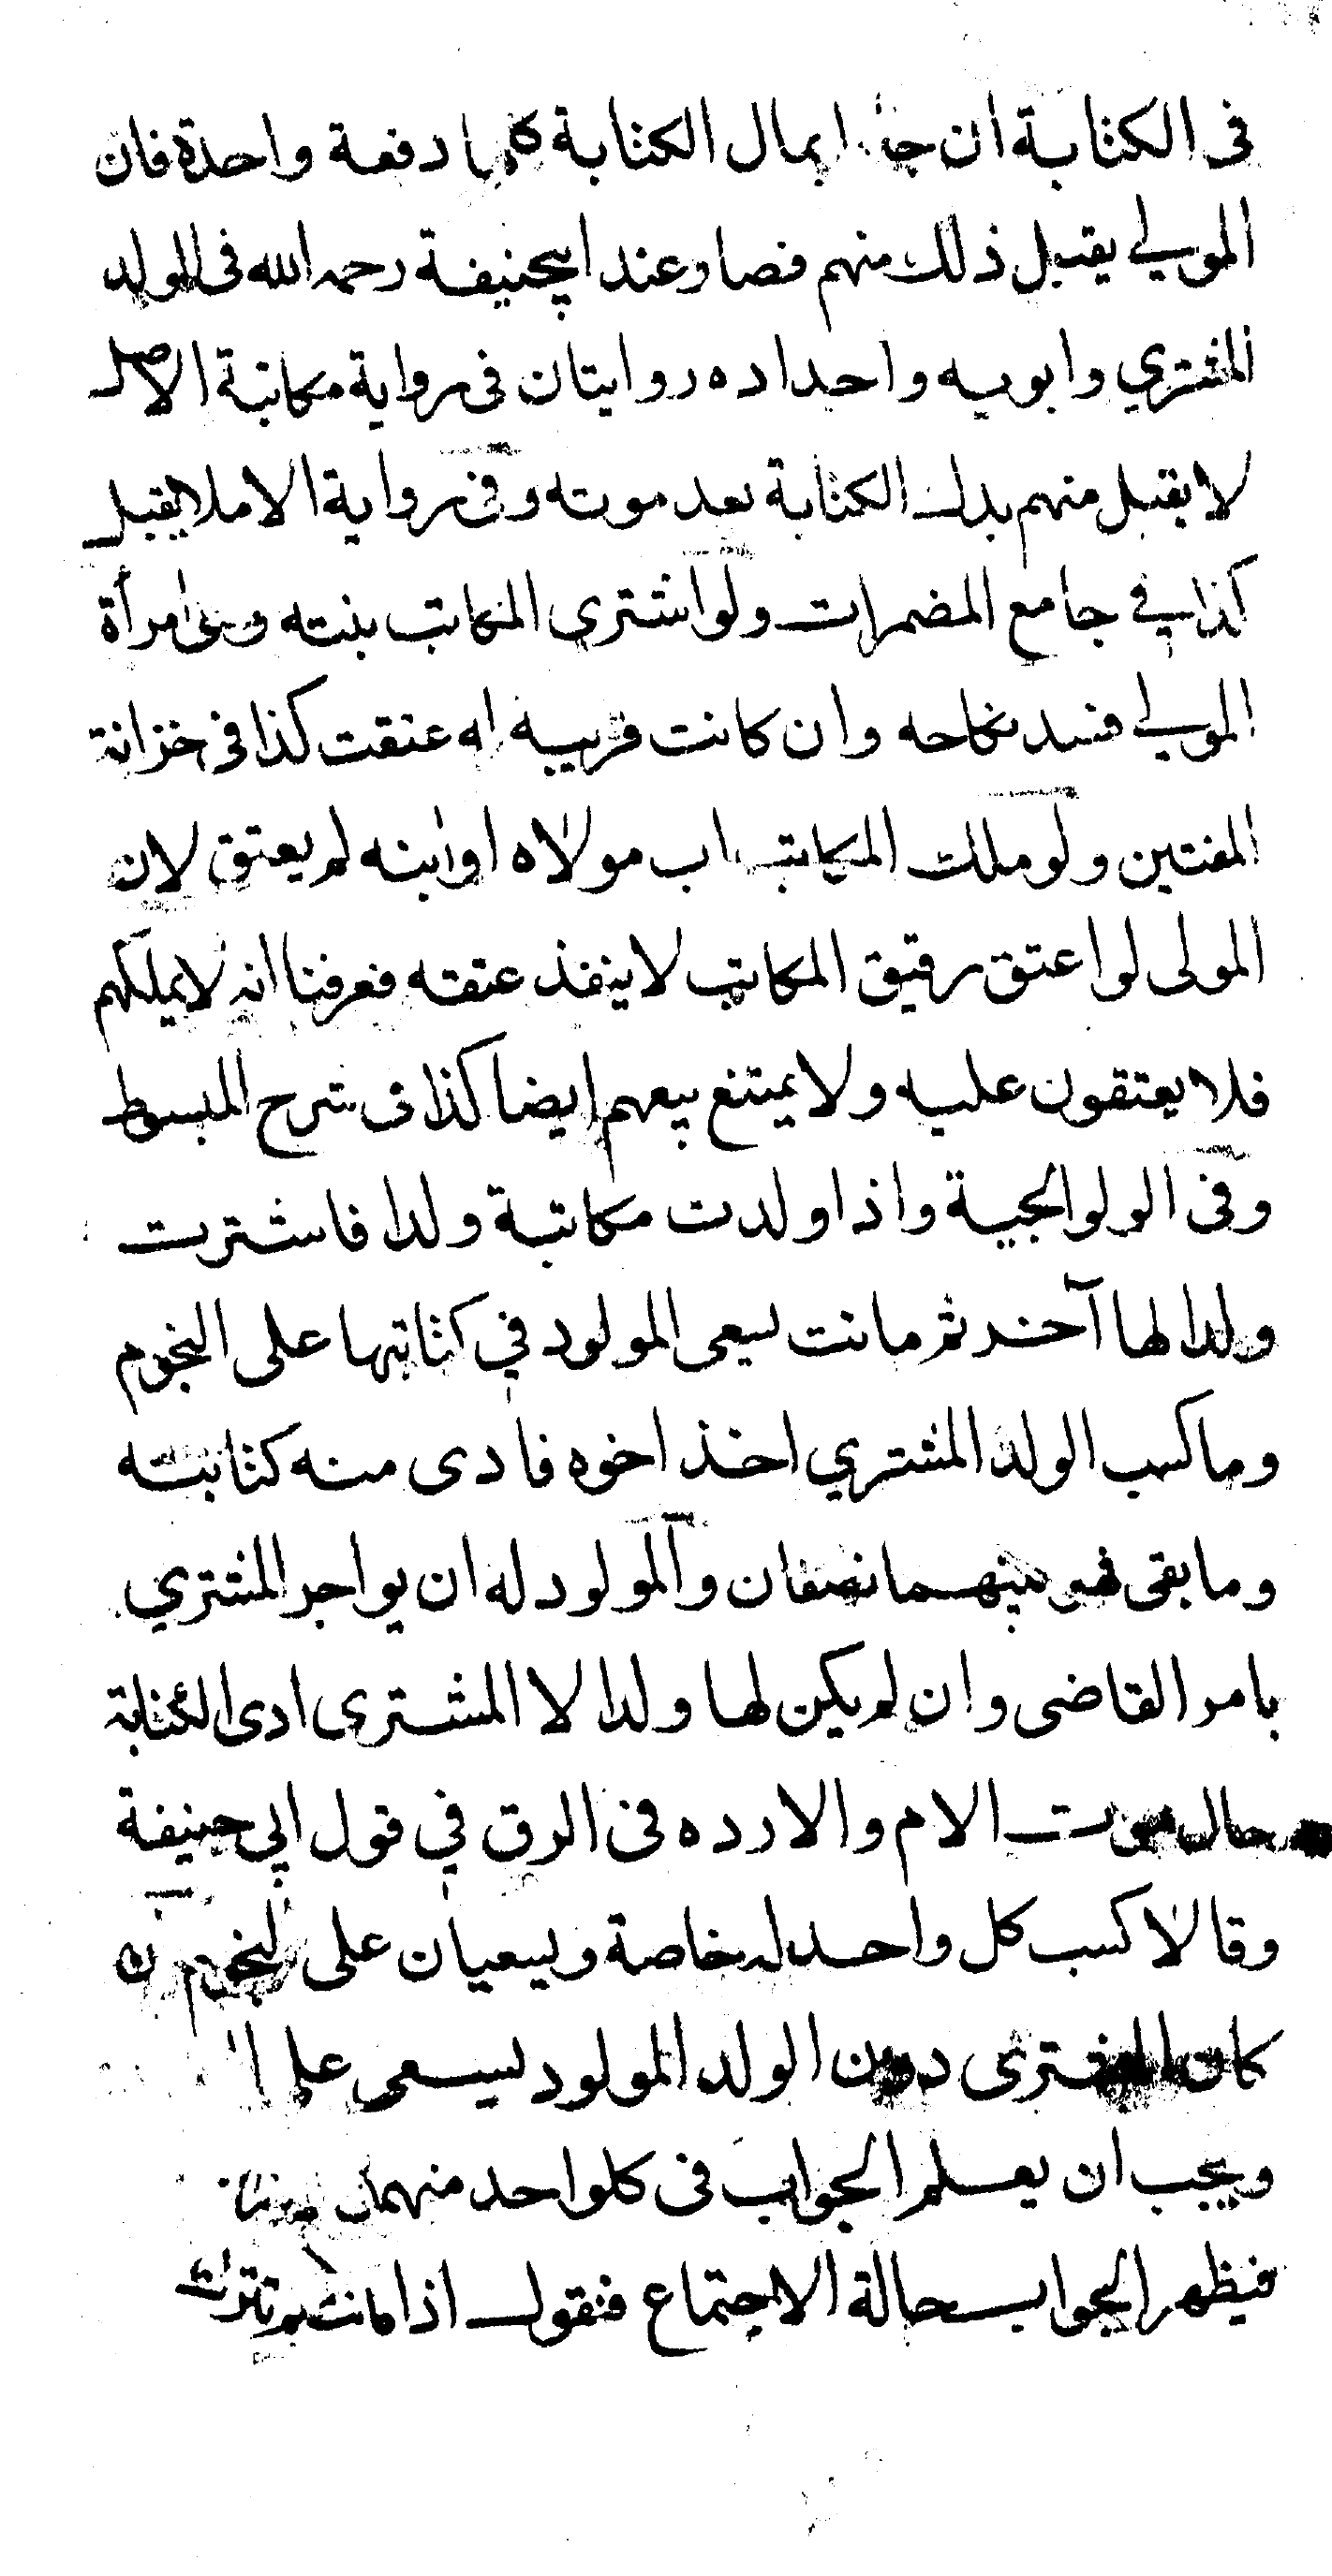 فى الكتابة ان جاؤا بمال الكتابة كلها دفعة واحدة فان
المولى يقبل ذلك منهم فصار عند ابيحنيفة رحمه الله فى الولد
المشتري وابويه واجداده روايتان فى رواية مكاتبة الاصل
لا يقبل منهم بدل الكتابة بعد موته وفى رواية الاملا يقبل
كذا في جامع المضمرات ولو اشترى المكاتب بنته وهى امرأة
المولى فسد نكاحه وان كانت قريبه له عتقت كذا فى خزانة
المفتين ولو ملك المكاتب اب مولاه او ابنه لم يعتق لان
المولى لو اعتق رقيق المكاتب لا ينفذ عتقه فعرفنا انه لا يملكهم
فلا يعتقون عليه ولا يمتنع بيعهم ايضا كذا فى شرح المبسوط
وفى الولوالجية واذا ولدت مكاتبة ولدا فاشترت
ولدا لها آخر ثم ماتت يسعى المولود في كتابتها على النجوم
وما كسب الولد المشتري اخذ اخوه فادى منه كتابته
وما بقى فهو بينهما نصفان والمولود له ان يواجر المشتري
بامر القاضى وان لم يكن لها ولد الا المشترى ادى الكتابة
حال موت الام والا رده فى الرق في قول ابي حنيفة
وقالا كسب كل واحد له خاصة ويسعيان على النجوم ان
كان المشترى دون الولد المولود يسعى على
ويجب ان يعلم الجواب فى كل واحد منهما
فيظهر الجواب حالة الاجتماع فنقول اذا ماتت ولم تترك